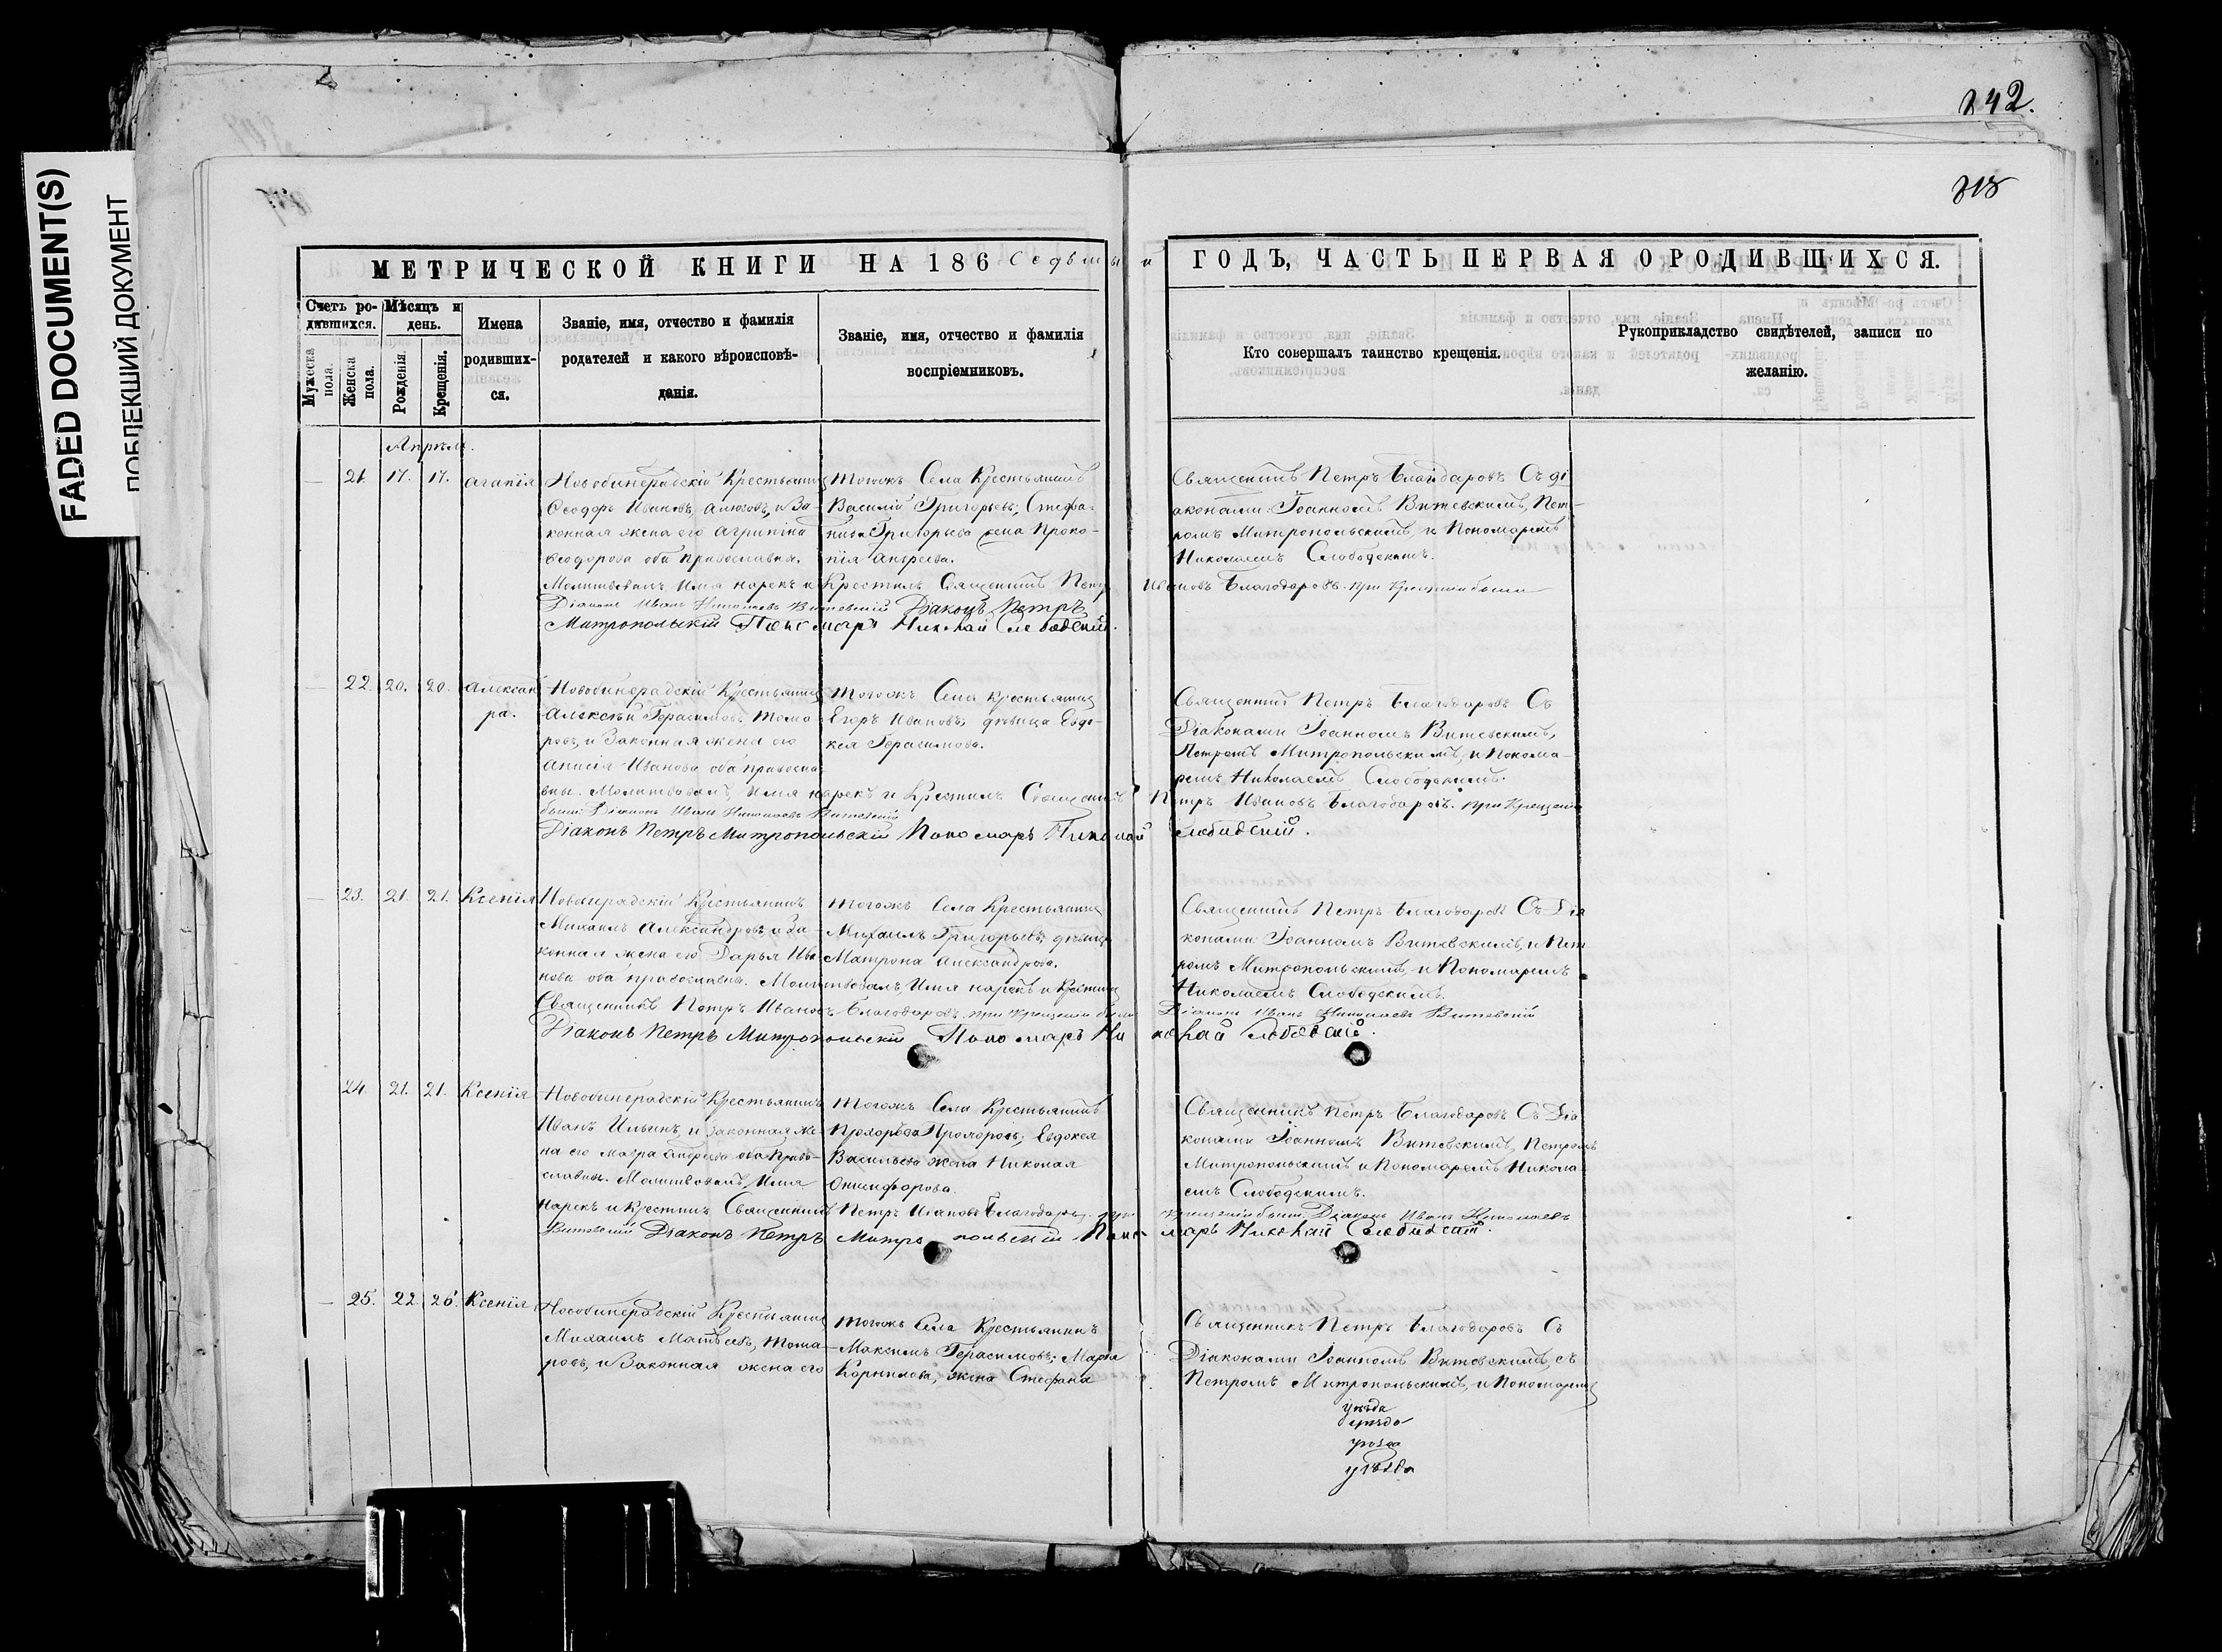 FADED DOCUMENT(S)
ПОБЛЕКШИЙ ДОКУМЕНТ
242.
МЕТРИЧЕСКОЙ КНИГИ НА 186 Седьмый ГОДЪ, ЧАСТЬ ПЕРВАЯ О РОДИВШИХСЯ.
Счетъ родившихся.
Мужеска пола.
Женска пола.
Мѣсяцъ и день.
Рожденія.
Крещенія.
Имена
родивших-
ся.
Званіе, имя, отчество и фамилія
родителей и какого вѣроисповѣ-
данія.
Званіе, имя, отчество и фамилія
воспріемниковъ.
Кто совершалъ таинство крещенія.
Рукоприкладство свидѣтелей, записи по
желанію.
Апрѣль.
21. 17. 17. Агапія
Крестьянинъ
Феодоръ Ивановъ, и За-
конная жена его Агрипина
Феодорова оба православны.
Тогожъ Села Крестьянинъ
Василій Григорьевъ, Стефа-
Григорьева жена Проко-
пія Андреева.
Священникъ Петръ Благодаровъ Съ Ді
аконами Іоанномъ Витевскимъ, Пет-
ромъ Митропольскимъ и Пономаремъ
Николаемъ Слободскимъ.
Молитвовалъ, Имя нарекъ и Крестилъ Священникъ Петръ Ивановъ Благодаровъ. При Крещеніи были
Діаконъ Иванъ Николаевъ Витевскій Діаконъ Петръ
Митропольскій Пономарь Николай Слободскій.
22. 20. 20. Алексан
ра.
Крестьянинъ
Алексѣй Герасимовъ, Тома-
ровъ, и Законная жена его
Анисія Иванова оба правосла-
Тогожъ Села Крестьянинъ
Егоръ Ивановъ; дѣвица Евдо-
кея Герасимова.
Священникъ Петръ Благодаровъ Съ
Діаконами Іоанномъ Витевскимъ,
Петромъ Митропольскимъ, и Понома-
ремъ Николаемъ Слободскимъ.
вны. Молитвовалъ, Имя нарекъ и Крестилъ Священникъ Петръ Ивановъ Благодаровъ. При Крещеніи
были: Діаконъ Иванъ Николаевъ Витевскій
Діаконъ Петръ Митропольскій Пономарь Николай Слободскій.
23. 21. 21. Ксенія
Крестьянинъ
Михаилъ Александровъ и За-
конная жена его Дарья Ива-
нова оба православны. Молитвовалъ, Имя нарекъ и Крестилъ
Тогожъ Села Крестьянинъ
Михаилъ Григорьевъ; дѣвица
Матрона Александрова.
Священникъ Петръ Благодаровъ Съ Діа
конами Іоанномъ Витевскимъ, и Пет
ромъ Митропольскимъ и Пономаремъ
Николаемъ Слободскимъ.
Священникъ Петръ Ивановъ Благодаровъ. При Крещеніи были Діаконъ Иванъ Николаевъ Витевскій
Діаконъ Петръ Митропольскій Пономарь Николай Слободскій.
24. 21. 21. Ксенія
Крестьянинъ
Иванъ Ильинъ, и Законная же-
на его Андреева оба Право-
славны. Молитвовалъ, Имя
Тогожъ Села Крестьянинъ
Прохоровъ; Евдокея
Васильева жена Николая
Онисифорова.
Священникъ Петръ Благодаровъ Съ Діа
конами Іоанномъ Витевскимъ, Петромъ
Митропольскимъ и Пономаремъ Никола-
емъ Слободскимъ.
нарекъ и Крестилъ Священникъ Петръ Ивановъ Благодаровъ. При Крещеніи были: Діаконъ Иванъ Николаевъ
Витевскій Діаконъ Петръ Митропольскій Пономарь Николай
25. 22. 26. Ксенія
Крестьянинъ
Михаилъ Матвѣевъ, Тома-
ровъ, и Законная жена его
Тогожъ Села Крестьянинъ
Максимъ Герасимовъ; Марія
Корнилова, жена Стефана
Священникъ Петръ Благодаровъ Съ
Діаконами Іоанномъ Витевскимъ, съ
Петромъ Митропольскимъ, и Пономаремъ
уѣзда
уѣзда